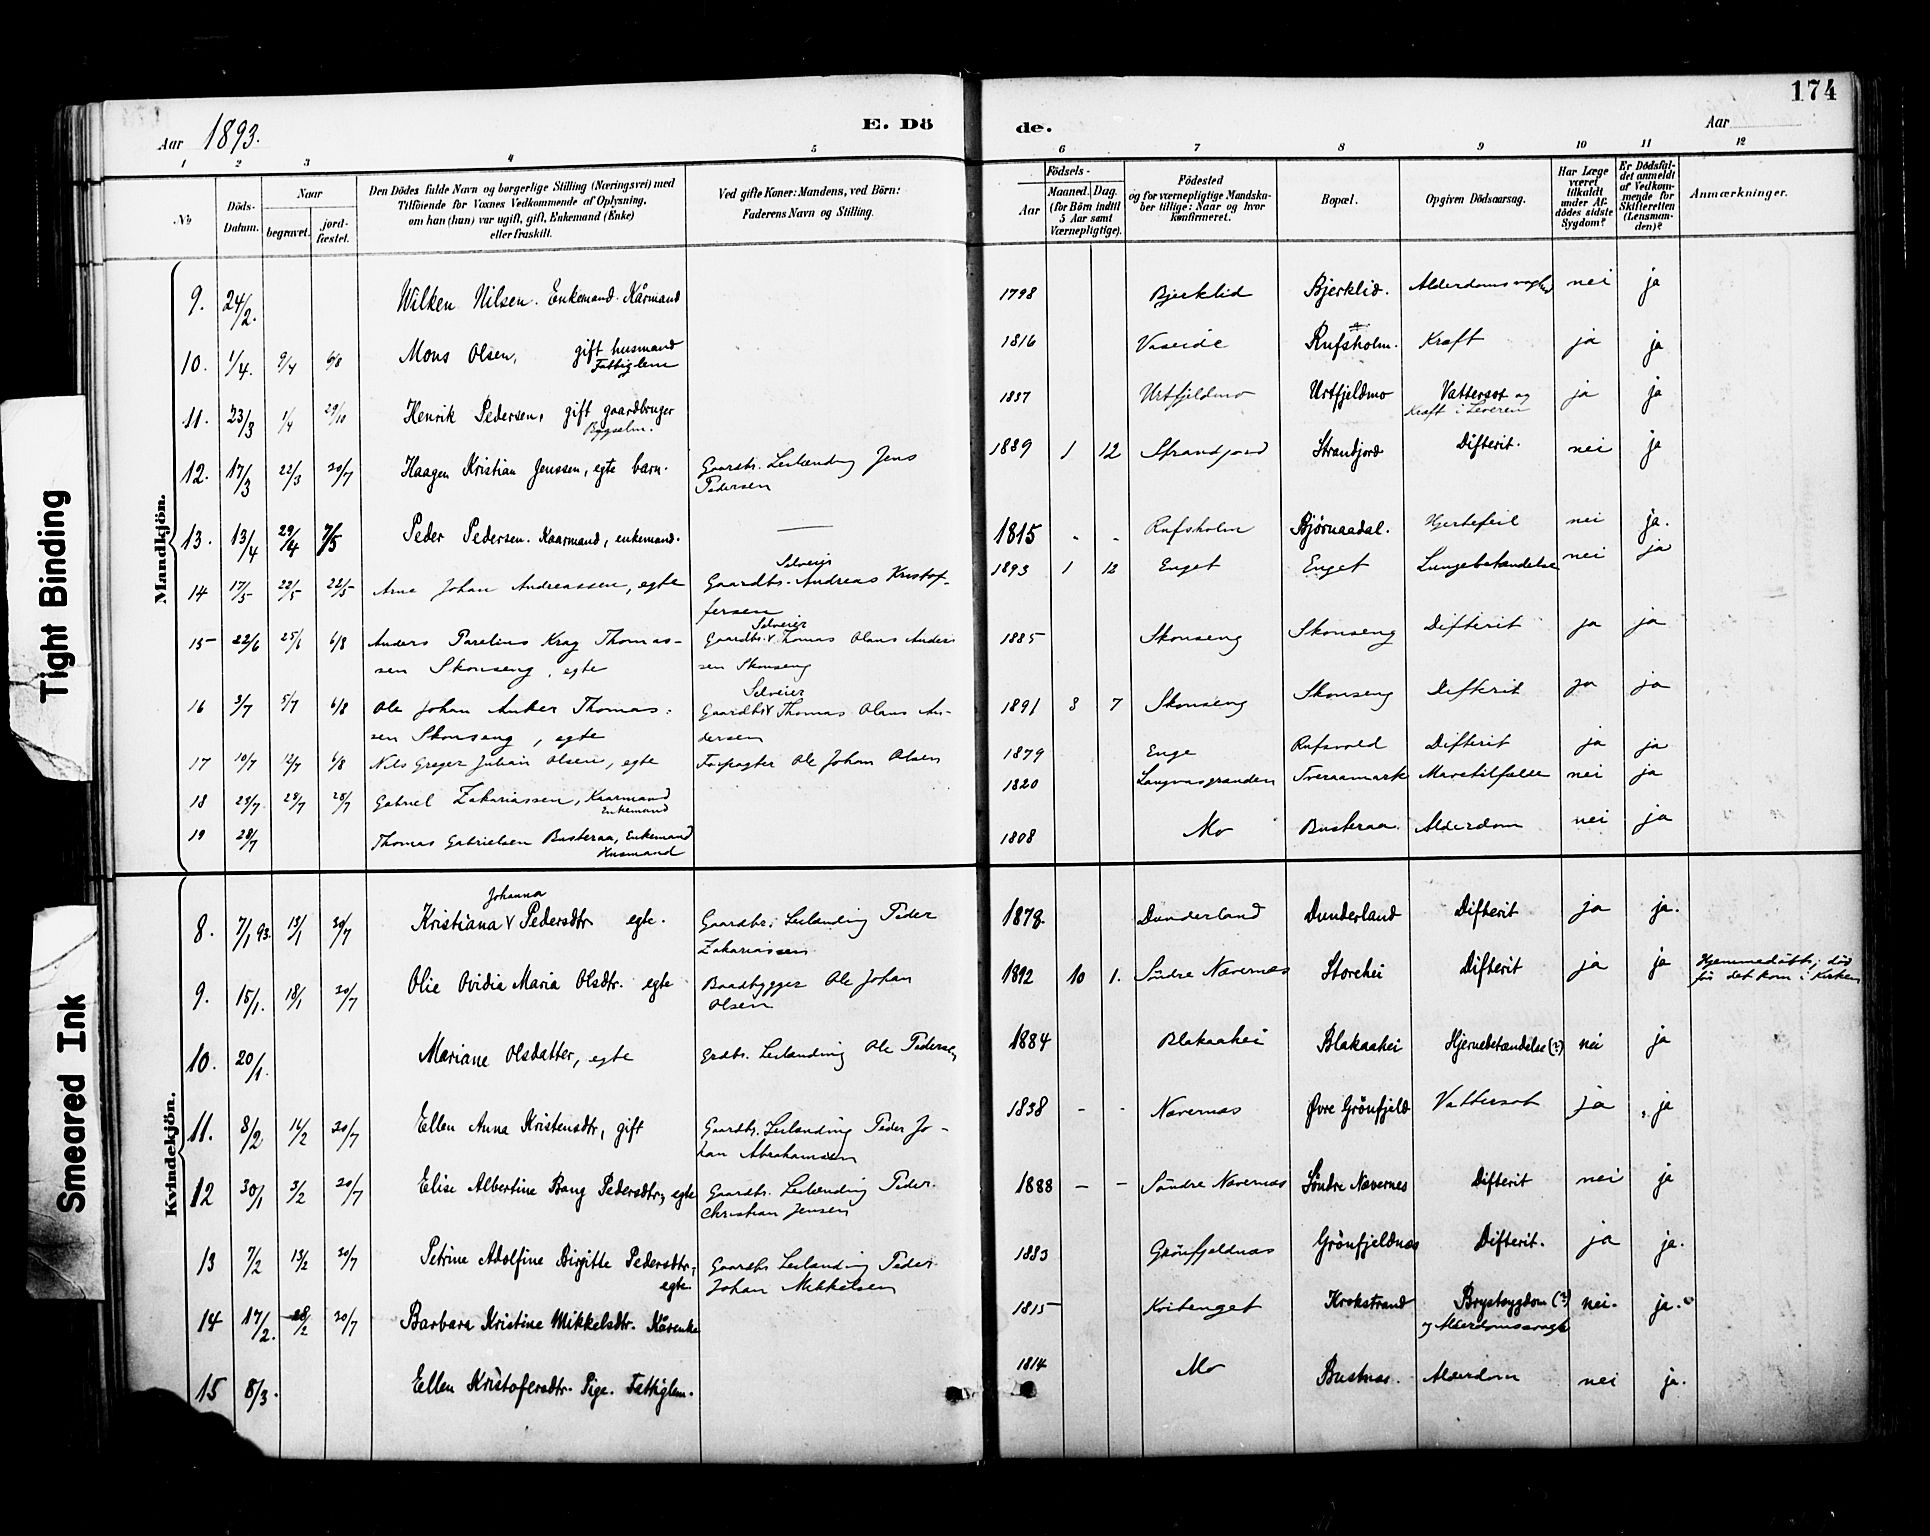 174
Aar 1893.
E. Dö de.
Aar
1 2 3 4 5 6 7 8 9 10 11 12
No
Döds-Datum.
Naar
begravet.
jord-fæstet.
Den Dödes fulde Navn og borgerlige Stilling (Næringsvei) med
Tilföiende for Voxnes Vedkommende af Oplysning,
om han (han) var ugift, gift, Enkemand (Enke)
eller fraskilt.
Ved gifte Koner: Mandens, ved Börn:
Faderens Navn og Stilling.
Födsels-
Aar
Maaned. Dag.
(for Börn indtil
5 Aar samt
Værnepligtige).
Födested
og for værnepligtige Mandska-
ber tillige: Naar og hvor
Konfirmeret.
Bopæl.
Opgiven Dödsaarsag.
Har Læge
været
tilkaldt
under Af-
dödes sidste
Sygdom?
Er Dödsfal-
det anmeldt
af Vedkom-
mende for
Skifteretten
(Lensman-
den)?
Anmærkninger.
Mandkjön.
9. 24/2. Wilken Nilsen. Enkemand. Kårmand 1798 Bjerklid Bjerklid. nei ja
10. 1/4. 9/4 6/8 Mons Olsen, gift husmand 1816 Vaseide Rufsholm. Kræft ja ja
Fattiglem
11. 23/3 1/4 29/10 Henrik Pedersen, gift gaardbruger 1837 Urtfjeldmo Urtfjeldmo Vattersot og ja ja
Bygselm. Kræft i Leveren
12. 17/3 22/3 20/7 Haagen Kristian Jenssen, egte barn. Gaardbr. Leilænding Jens 1889 1 12 Strandjord Strandjord Difterit. nei ja
Pedersen
13. 13/4 29/4 7/5 Peder Pedersen. Kaarmand, enkemand. — 1815 - - Rufsholm Bjørnaadal. Hjertefeil nei ja.
Selveier
14 17/5 22/5 22/5 Arne Johan Andreassen, egte Gaardbr. Andreas Kristof- 1893 1 12 Enget Enget Lungebetændelse nei ja
fersen
Selveier
15 22/6 25/6 6/8 Anders Parelius Krag Thomas- Gaardbr. Thomas Olaus Ander- 1885 Skonseng Skonseng Difterit ja ja
sen Skonseng, egte sen Skonseng
Selveier
16 3/7 5/7 6/8 Ole Johan Anker Thomas- Gaardbr Thomas Olaus An- 1891 3 7 Skonseng Skonseng Difterit ja ja
sen Skonseng, egte dersen
17 10/7 12/7 6/8 Nils Greger Julian Olsen, egte Forpagter Ole Johan Olsen 1879 Enge Rufsvold Difterit ja ja
18 23/7 28/7 28/7 Gabriel Zakariassen, Kaarmand 1820 Langvasgrunden Tveraamark Mavetilfælde nei ja
Enkemand
19 28/7 Thomas Gabrielsen Busteraa, Enkemand 1808 Mo Busteraa. Alderdom nei ja
Husmand
Kvindekjön.
Johanna
8. 7/1 93. 13/1 20/7 Kristiana Pedersdtr egte. Gaardbr. Leilænding Peder 1878 Dunderland Dunderland Difterit ja ja.
Zakariassen
9. 15/1. 18/1 20/7 Olie Ovidia Maria Olsdtr. egte Baadbygger Ole Johan 1892 10 1. Söndre Nævernes Storehei Difterit ja ja Hjemmedöbt; död
Olsen før det kom i Kirken
10. 20/1. Mariane Olsdatter, egte Grdbr. Leilænding Ole Pedersen 1884 Blakaahei Blakaahei Hjernebetændelse (?) nei ja
11. 8/2 16/2 20/7 Ellen Anna Kristensdtr, gift Gaardbr. Leilænding Peder Jo- 1838 - - Nævernes Øvre Grönfjeld Vattersot ja ja
han Abrahamsen
12 30/1 3/2 20/7 Elise Albertine Bang Pedersdtr, egte Gaardbr. Leilænding Peder 1888 - - Söndre Nævernes Söndre Nævernes Difterit nei ja
Christian Jensen
13 7/2 13/2 20/7 Petrine Adolfine Birgitte Pedersdtr, Gaardbr Leilænding Peder 1883 Grönfjeldnæs Grönfjeldnæs Difterit. ja ja.
egte Johan Mikkelsen
14 17/2. 28/2 20/7 Barbara Kristine Mikkelsdtr. Kårenke 1815 Kvitenget Krokstrand Brystsygdom (?) nei. ja.
15 8/3. Ellen Kristofersdtr. Pige. Fattiglem. 1814 Mo Bustnes. Alderdom nei ja.
Tight Binding
Smeared Ink